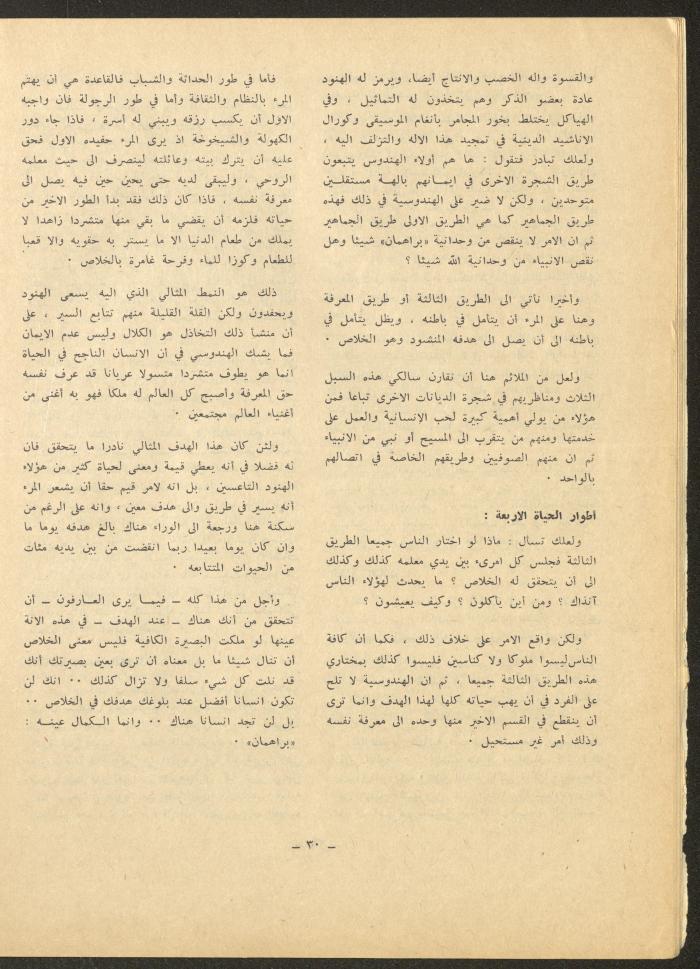 والقسوة واله الخصب والانتاج أيضا، ويرمز له الهنود
عادة بعضو الذكر وهم يتخذون له التماثيل ، وفي
الهياكل يختلط بخور المجامر بأنغام الموسيقى وكورال
الاناشيد الدينية في تمجيد هذا الاله والتزلف اليه ،
ولعلك تبادر فتقول : ها هم أولاء الهندوس يتبعون
طريق الشجرة الاخرى في ايمانهم بالهة مستقلين
متوحدين ، ولكن لا ضير على الهندوسية في ذلك فهذه
طريق الجماهير كما هي الطريق الاولى طريق الجماهير
ثم ان الامر لا ينقص من وحدانية «براهمان» شيئا وهل
نقص الانبياء من وحدانية الله شيئا ؟
وأخيرا نأتي الى الطريق الثالثة أو طريق المعرفة
وهنا على المرء أن يتأمل في باطنه ، ويظل يتأمل في
باطنه الى أن يصل الى هدفه المنشود وهو الخلاص ·
ولعل من الملائم هنا أن نقارن سالكي هذه السبل
الثلاث ومناظريهم في شجرة الديانات الاخرى تباعا فمن
هؤلاء من يولي أهمية كبيرة لحب الانسانية والعمل على
خدمتها ومنهم من يتقرب الى المسيح أو نبي من الانبياء
ثم ان منهم الصوفيين وطريقهم الخاصة في اتصالهم
بالواحد ·
أطوار الحياة الاربعة :
ولعلك تسأل : ماذا لو اختار الناس جميعا الطريق
الثالثة فجلس كل امرىء بين يدي معلمه كذلك وكذلك
الى أن يتحقق له الخلاص ؟ ما يحدث لهؤلاء الناس
آنذاك ؟ ومن أين يأكلون ؟ وكيف يعيشون ؟
ولكن واقع الامر على خلاف ذلك ، فكما أن كافة
الناس ليسوا ملوكا ولا كناسين فليسوا كذلك بمختاري
هذه الطريق الثالثة جميعا ، ثم ان الهندوسية لا تلح
على الفرد في أن يهب حياته كلها لهذا الهدف وانما ترى
أن ينقطع في القسم الاخير منها وحده الى معرفة نفسه
وذلك أمر غير مستحيل ·
فأما في طور الحداثة والشباب فالقاعدة هي أن يهتم
المرء بالنظام والثقافة وأما في طور الرجولة فان واجبه
الاول أن يكسب رزقه ويبني له أسرة ، فاذا جاء دور
الكهولة والشيخوخة اذ يرى المرء حفيده الاول فحق
عليه أن يترك بيته وعائلته لينصرف الى حيث معلمه
الروحي ، وليبقى لديه حتى يحين حين فيه يصل الى
معرفة نفسه ، فاذا كان ذلك فقد بدأ الطور الاخير من
حياته فلزمه أن يقضي ما بقي منها متشردا زاهدا لا
يملك من طعام الدنيا الا ما يستر به حقويه والا قعبا
للطعام وكوزا للماء وفرحة غامرة بالخلاص ·
ذلك هو النمط المثالي الذي اليه يسعى الهنود
ويحفدون ولكن القلة القليلة منهم تتابع السير ، على
أن منشأ ذلك التخاذل هو الكلال وليس عدم الايمان
فما يشك الهندوسي في أن الانسان الناجح في الحياة
انما هو يطوف متشردا متسولا عريانا قد عرف نفسه
حق المعرفة وأصبح كل العالم له ملكا فهو به أغنى من
أغنياء العالم مجتمعين ·
ولئن كان هذا الهدف المثالي نادرا ما يتحقق فان
له فضلا في أنه يعطي قيمة ومعنى لحياة كثير من هؤلاء
الهنود التاعسين ، بل انه لامر قيم حقا أن يشعر المرء
أنه يسير في طريق والى هدف معين ، وانه على الرغم من
سكنة هنا ورجعة الى الوراء هناك بالغ هدفه يوما ما
وان كان يوما بعيدا ربما انقضت من بين يديه مئات
من الحيوات المتتابعه ·
وأجل من هذا كله ــ فيما يرى العارفون ــ أن
تتحقق من أنك هناك ــ عند الهدف ــ في هذه الانة
عينها لو ملكت البصيرة الكافية فليس معنى الخلاص
أن تنال شيئا ما بل معناه أن ترى بعين بصيرتك أنك
قد نلت كل شيء سلفا ولا تزال كذلك ·· انك لن
تكون انسانا أفضل عند بلوغك هدفك في الخلاص ··
بل لن تجد انسانا هناك ·· وانما الكمال عينه :
«براهمان» ·
ــ ٣٠ ــ